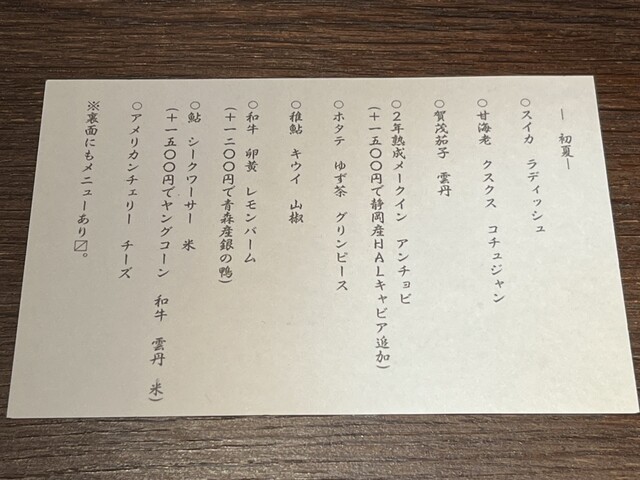 ― 初夏―
○スイカ ラディッシュ
○甘海老 クスクス コチュジャン
○賀茂茄子 雲丹
○2年熟成メークイン アンチョビ
(+一五〇〇円で静岡産HALキャビア追加)
○ホタテ ゆず茶 グリンピース
○稚鮎 キウイ 山椒
○和牛 卵黄 レモンバーム
(+一二〇〇円で青森産銀の鴨)
○鮎 シークワーサー 米
(+一五〇〇円でヤングコーン 和牛 雲丹 米)
○アメリカンチェリー チーズ
※裏面にもメニューあり〼。